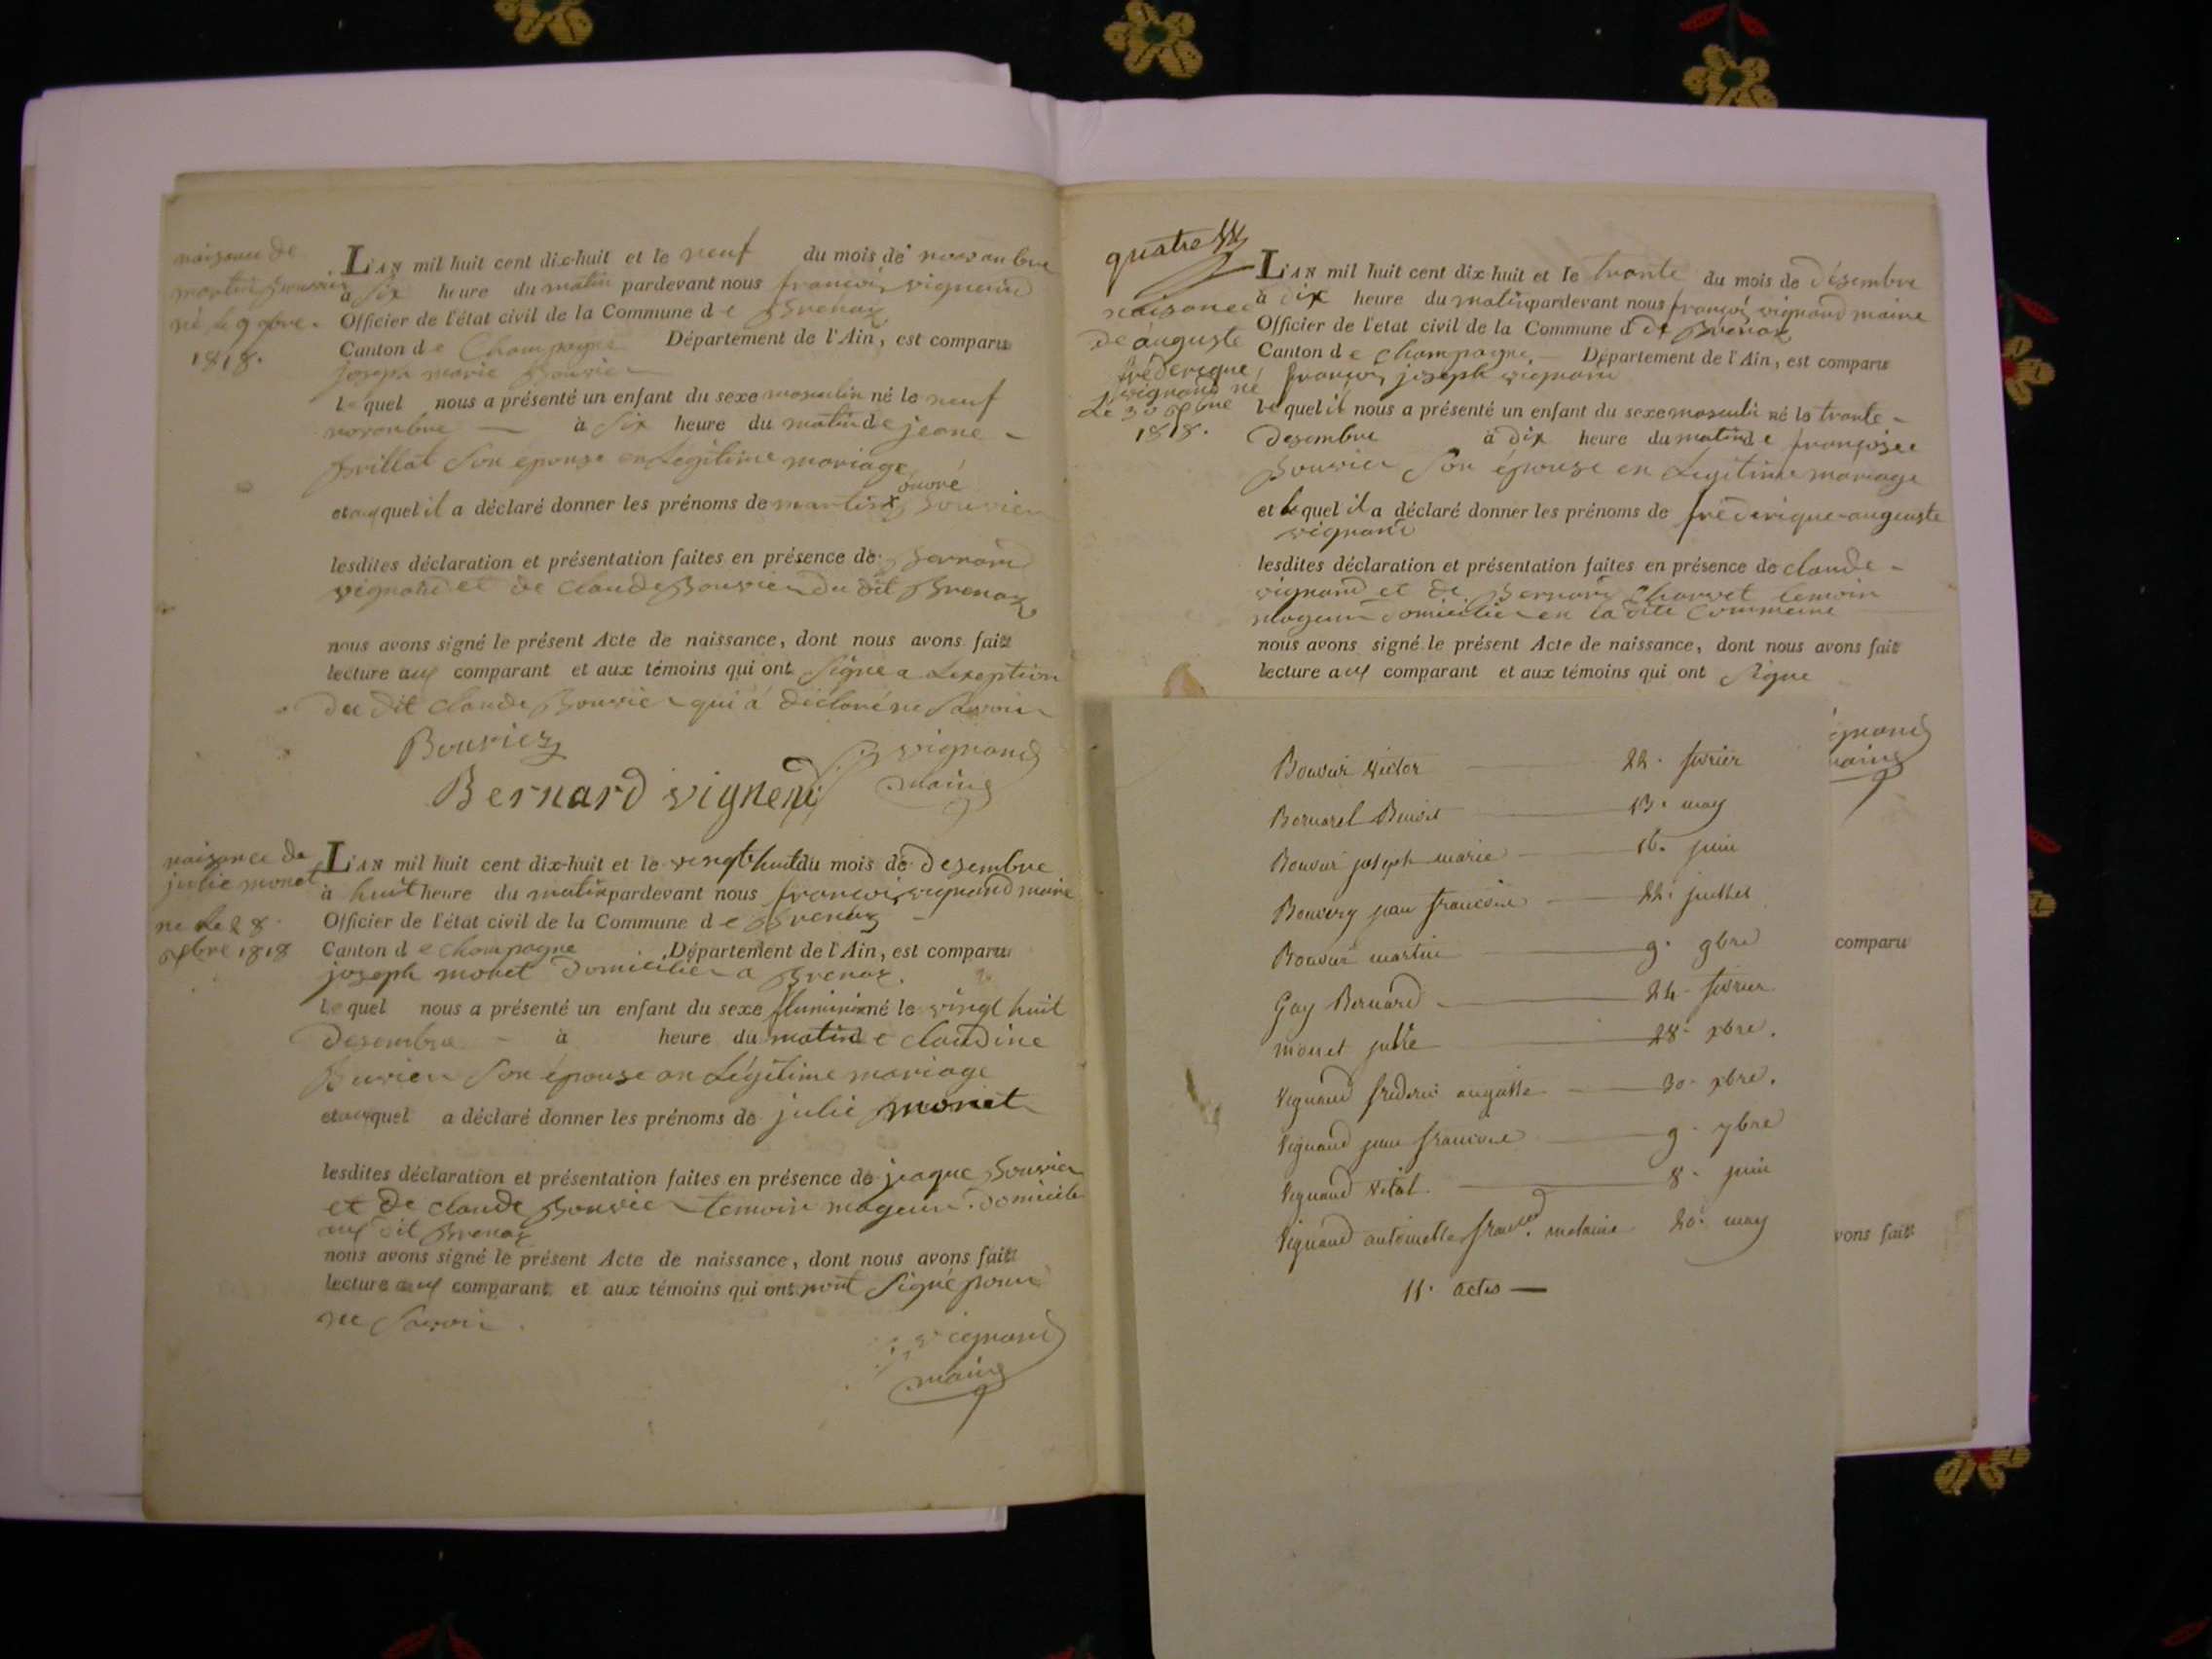 naisance de
martin Bouvier
né le 9 9bre.
1818.
L'AN mil huit cent dix-huit et le neuf du mois de novanbre
à six heure du matin pardevant nous francois vignand
Officier de l'état civil de la Commune de Brenaz
Canton de Champagne Département de l'Ain, est comparu
joseph marie Bouvier
lequel nous a présenté un enfant du sexe masculin né le neuf
novanbre — à six heure du matin de jeane -
Brillat son épouse en Légitime mariage
et auquel il a déclaré donner les prénoms de martin x Bouvier
lesdites déclaration et présentation faites en présence de Bernard
vignand et de Claude Bouvier du dit Brenaz
nous avons signé le présent Acte de naissance, dont nous avons fait
lecture aux comparant et aux témoins qui ont signe a Lexeption
du dit Claude Bouvier qui a déclaré ne savoir
Bouvier
vignand
maire
Bernard vignend
naisance de
julie monet
né le 28
Xbre 1818
L'AN mil huit cent dix-huit et le vingt huit du mois de desembre
à huit heure du matin pardevant nous francois vignand maire
Officier de l'état civil de la Commune de Brenaz
Canton de Champagne Département de l'Ain, est comparu
joseph monet domicilié a Brenaz.
lequel nous a présenté un enfant du sexe né le vingt huit
desembre - à heure du matin de claudine
Buvier son épouse en Légitime mariage
et auquel a déclaré donner les prénoms de julie monet
lesdites déclaration et présentation faites en présence de jaque Bouvier
et de claude Bouvier temoin mageur domicile
aux dit Brenaz
nous avons signé le présent Acte de naissance, dont nous avons fait
lecture aux comparant et aux témoins qui ont nont signé pour
ne savoir.
vignand
maire
quatre
naisance
de auguste
frederique
vignand né
le 30 Xbre
1818.
L'AN mil huit cent dix-huit et le trante du mois de désembre
à dix heure du matin pardevant nous françois vignand maire
Officier de l'etat civil de la Commune de Brenaz
Canton de Champagne — Département de l'Ain, est comparu
françois joseph vignand
lequel il nous a présenté un enfant du sexe masculin né le trante -
desembre à dix heure du matin de françoise
Bouvier son épouse en Legitime mariage
et lequel il a déclaré donner les prénoms de frédérique auguste
vignand
lesdites déclaration et présentation faites en présence de claude -
vignand et de Bernard Charvet temoin
mageur domicilié en la dite Commune
nous avons signé le présent Acte de naissance, dont nous avons fait
lecture aux comparant et aux témoins qui ont signe
gnand
maire
Bouvier Victor — 22. fevrier
Bornarel Benoit — 13. may
Bouvier joseph marie — 16. juin
Bouvery jean francois — 22. juillet
Bouvier martin — 9. 9bre
comparu
Gay Bernard — 24. fevrier
monet julie — 28. xbre.
Vignand frederic auguste — 30. xbre.
Vignand jean francois — 9. 7bre
Vignand Vital. — 8. juin
Vignand antoinette melanie 20. may
vons fait
11. actes —